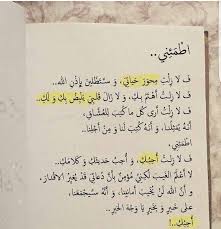 اطْمَئِنِّي..
فَ لا زِلْتِ مِحْوَرَ حَيَاتِي، وَ سَتَظَلِّينَ بِإِذْنِ اللَّه..
فَ لا زِلْتُ أَهْتَمُّ بِكِ، وَ لا زَالَ قَلْبِي يَنْبِضُ بِكِ وَ لَكِ..
فَ لا زِلْتُ أَرَى كُلَّ مَا كُتِبَ لِلعُشَّاقِ،
أَنَّهُ يُمَثِّلُنَا، وَ أَنَّهُ كُتِبَ لَنَا وَ مِنْ أَجْلِنَا..
اطْمَئِنِّي،
فَ لا زِلْتُ أُحِبُّكِ، وَ أُحِبُّ حَدِيثَكِ وَ كَلامَكِ..
لا أَعْلَمُ الغَيْبَ لَكِنِّي مُؤْمِنٌ بِأَنَّ دُعَائِي قَدْ يُغَيِّرُ الأَقْدَارَ،
وَ أَنَّ اللَّهَ لَنْ يُخَيِّبَ أَمَانِينَا، وَ أَنَّهُ سَيَجْمَعُنَا،
عَلَى خَيْرٍ وَ بِخَيْرٍ يَا وَجْهَ الخَيْرِ..
أُحِبُّكِ..!